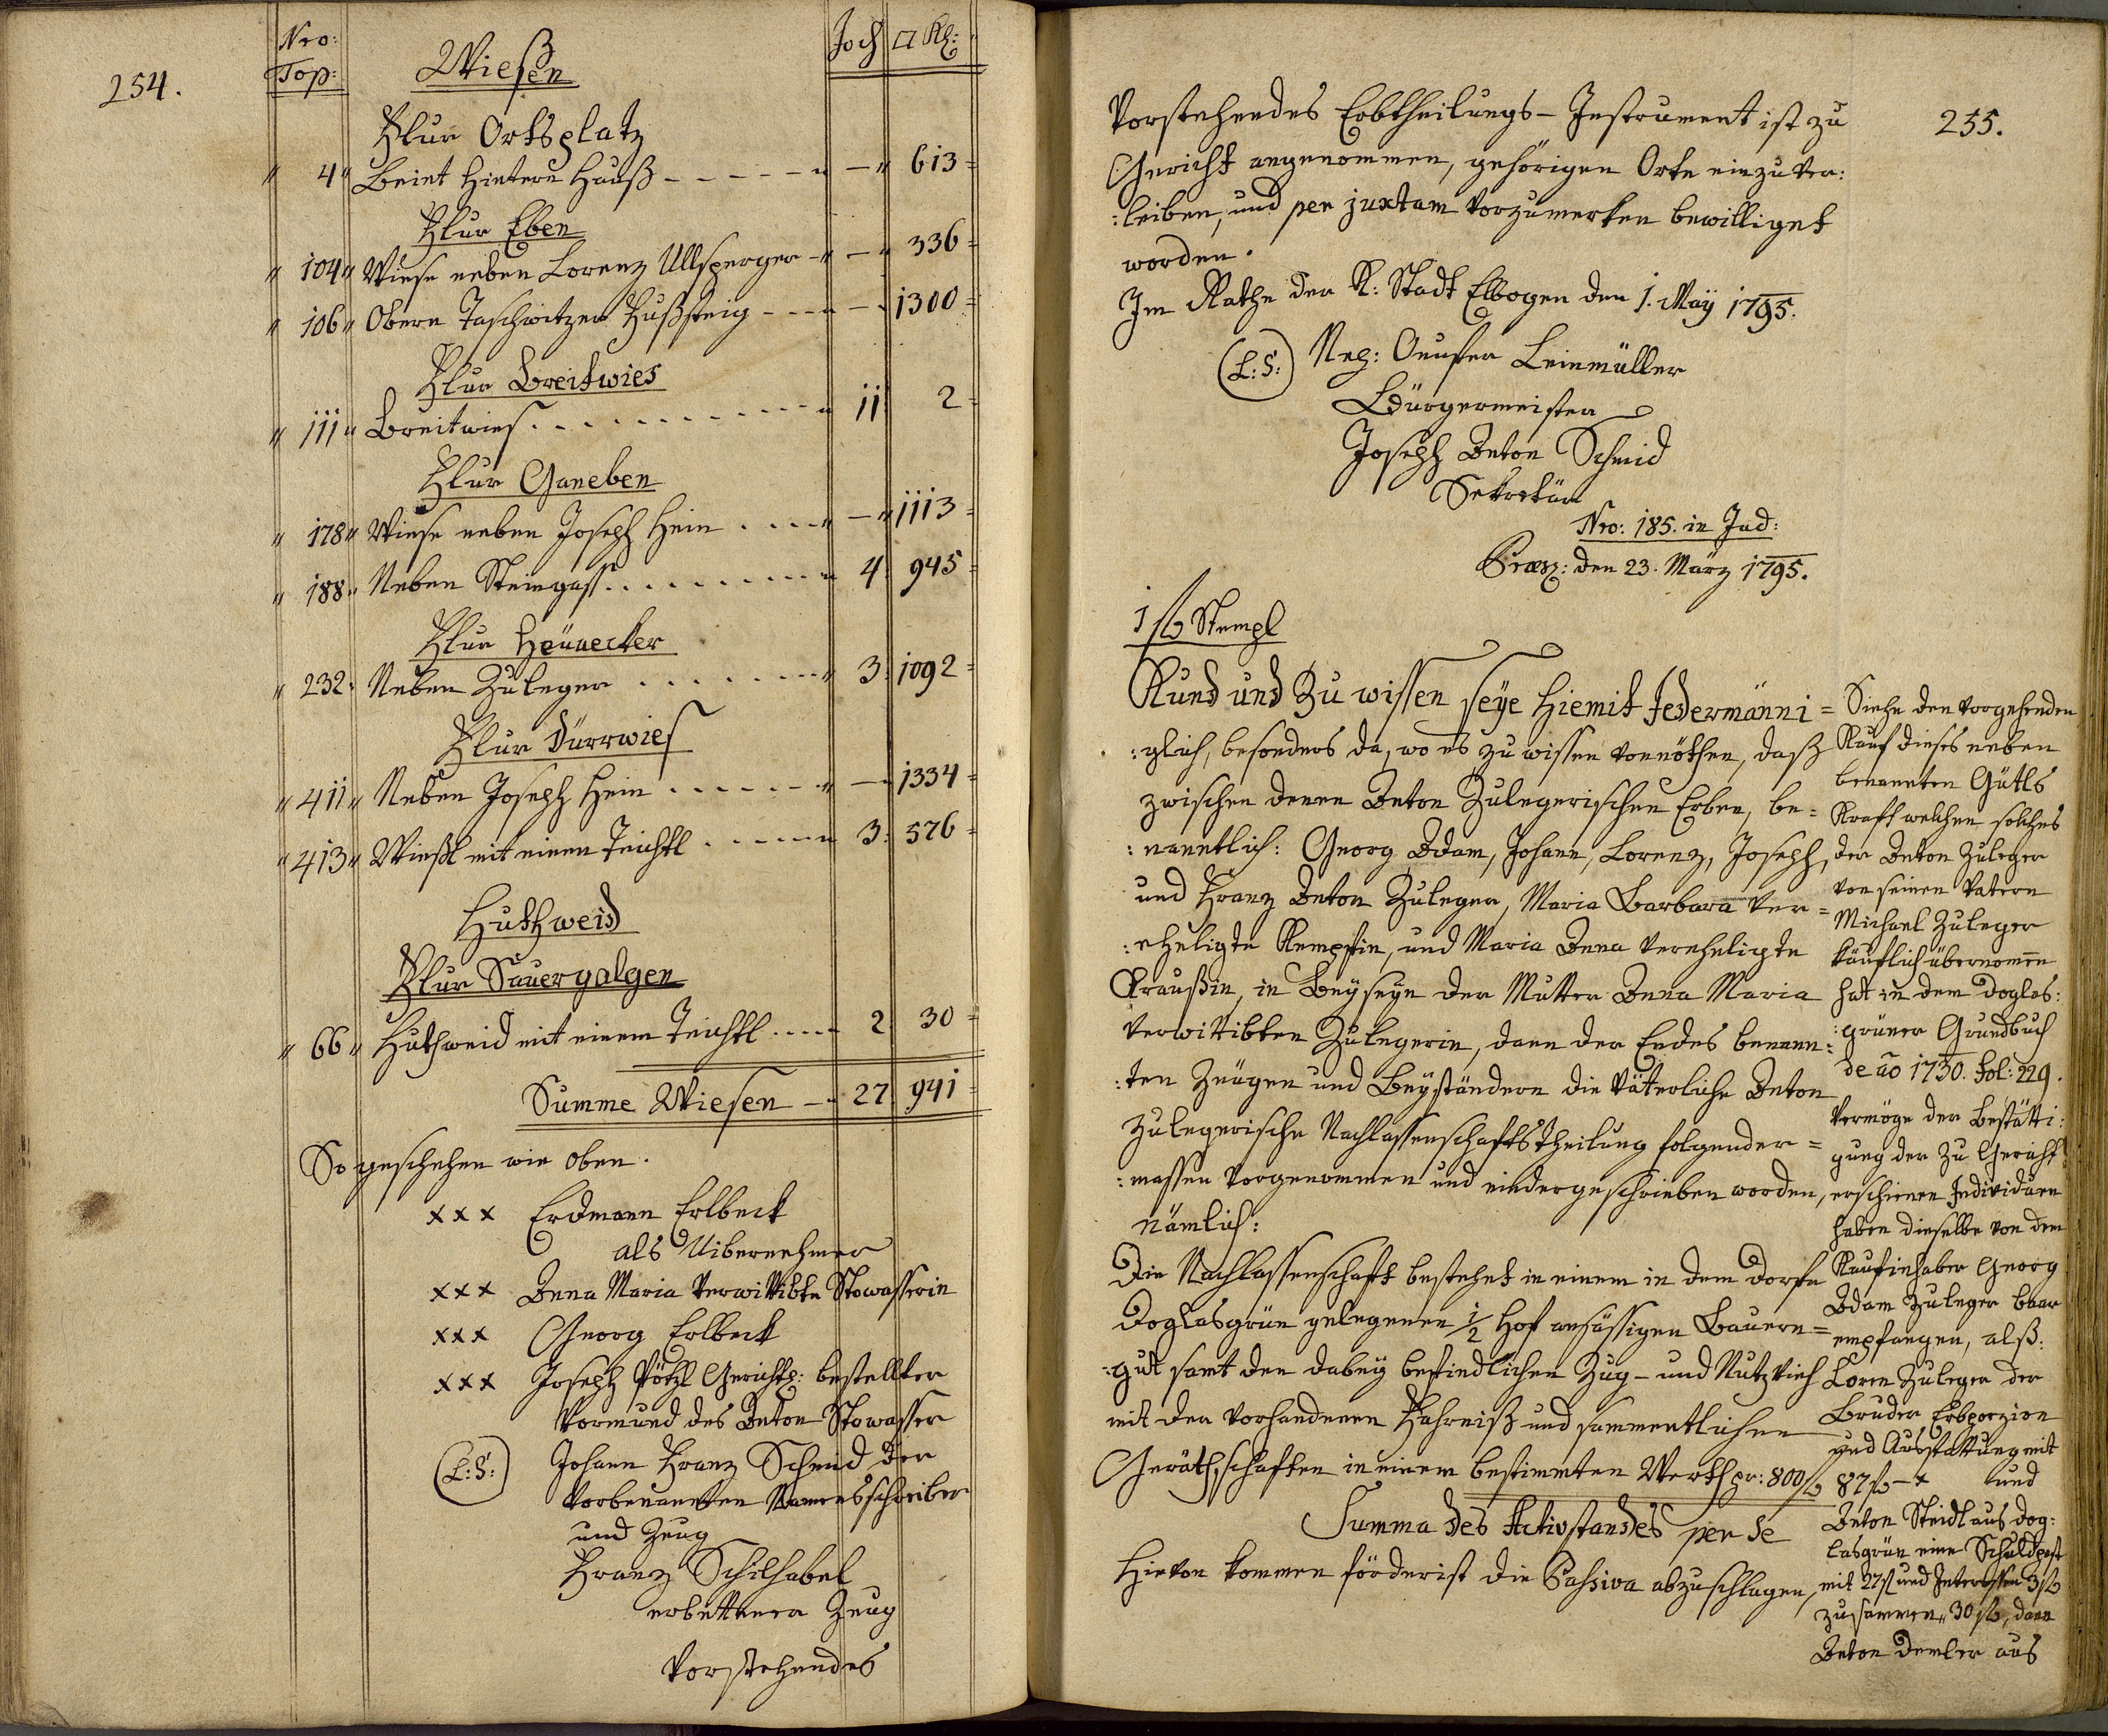 254.
Nro: Top: Wiesen Joch □ Kl:
Flur Ortsplatz
" 4 " Beint hintern Hauß - - - - - " — " 613 =
Flur Eben
" 104 " Wiese neben Lorenz Ullsperger - " — " 336 =
" 106 " Obern Taschwitzer Fußsteig - - - " — " 1300 =
Flur Breitwies
" 111 " Breitwies . - . - . - . - - - - " 11 2 =
Flur Ganeben
" 178 " Wiese neben Joseph Hein . . . - " — " 1113 =
" 188 " Neben Steingass . . . . . - - - - " 4 945 =
Flur Heüuecker
" 232 " Neben Zuleger . . . . . . - - " 3 1092 =
Flur Dürrwies
" 411 " Neben Joseph Hein . . . . - - - " — 1334 =
" 413 " Wießl mit einem Teichtl . . - - - " 3 576 =
Huthweid
Flur Sauergalgen
" 66 " Huthweid mit einem Teichtl . . - - - 2 30 =
Summe Wiesen — 27 941 =
So geschehen wie oben.
xxx Erdmann Erlbeck
als Uibernehmer
xxx Anna Maria verwittibte Stowasserin
xxx Georg Erlbeck
xxx Joseph Pötzl Gerichtl: bestellter
Vormund des Anton Stowasser
(L:S:) Johann Franz Schmid der
Vorbenannten Namensschreiber
und Zeug
Franz Schilhabel
erbettener Zeug
Vorstehendes
255.
Vorstehendes Erbtheilungs- Instrument ist zu
Gericht angenommen, gehörigen Orte einzuver:
:leiben, und per juxtam vorzumerken bewilliget
worden.
Im Rathe der K: Stadt Elbogen den 1. Maÿ 1795.
(L:S:) Leinmüller
Bürgermeister
Joseph Anton Schmid
Sekretär
Nro: 185. in Jud:
Præs: den 23. März 1795.
1 f Stempl
Kund und Zu wissen seÿe Hiemit Jedermänni =
:glich, besonders da, wo es zu wissen vonnöthen, daß
zwischen denen Anton Zulegerischen Erben, be =
:nanntlich: Georg Adam, Johann, Lorenz, Joseph,
und Franz Anton Zuleger, Maria Barbara Ver =
:eheligte Kempfin, und Maria Anna Vereheligte
Kraußin, in Beÿseÿn der Mutter Anna Maria
Verwittibten Zulegerin, dann der Endes benenn:
:ten Zeügen und Beÿständern die Väterliche Anton
Zulegerische Nachlassenschafts Theilung folgender =
:massen Vorgenommen und niedergeschrieben worden,
nämlich:
Die Nachlassenschaft bestehet in einem in dem Dorfe
Doglasgrün gelegenen 1/2 Hof ansässigen Bauern =
:gut samt den dabeÿ befindlichen Zug- und Nutzvieh
mit der vorhandenen Fahrniß und sammentlichen
Geräthschaften in einem bestimmten Werth pr: 800 f
Summa des Activstandes per se
Hievon kommen förderist die Passiva abzuschlagen,
Siehe den vorgehenden
Kauf dieses neben
benannten Gütls
Kraft welchen solches
der Anton Zuleger
von seinen Vatern
Michael Zuleger
käuflich übernomen
hat in dem Doglas:
:grüner Grundbuch
de ao 1730. Fol: 229.
Vermöge der Bestätti:
gung der zu Gericht
erschienen Individuen
haben dieselbe von dem
Kaufinhaber Georg
Adam Zuleger baar
empfangen, alß:
Loren Zuleger der
Bruder Erbporzion
und Ausstattung mit
87 f — x und
Anton Steidl aus Dog:
lasgrün eine Schuldpost
mit 27 f und Interessen 3 f
zusammen " 30 f, dann
Anton Demler aus